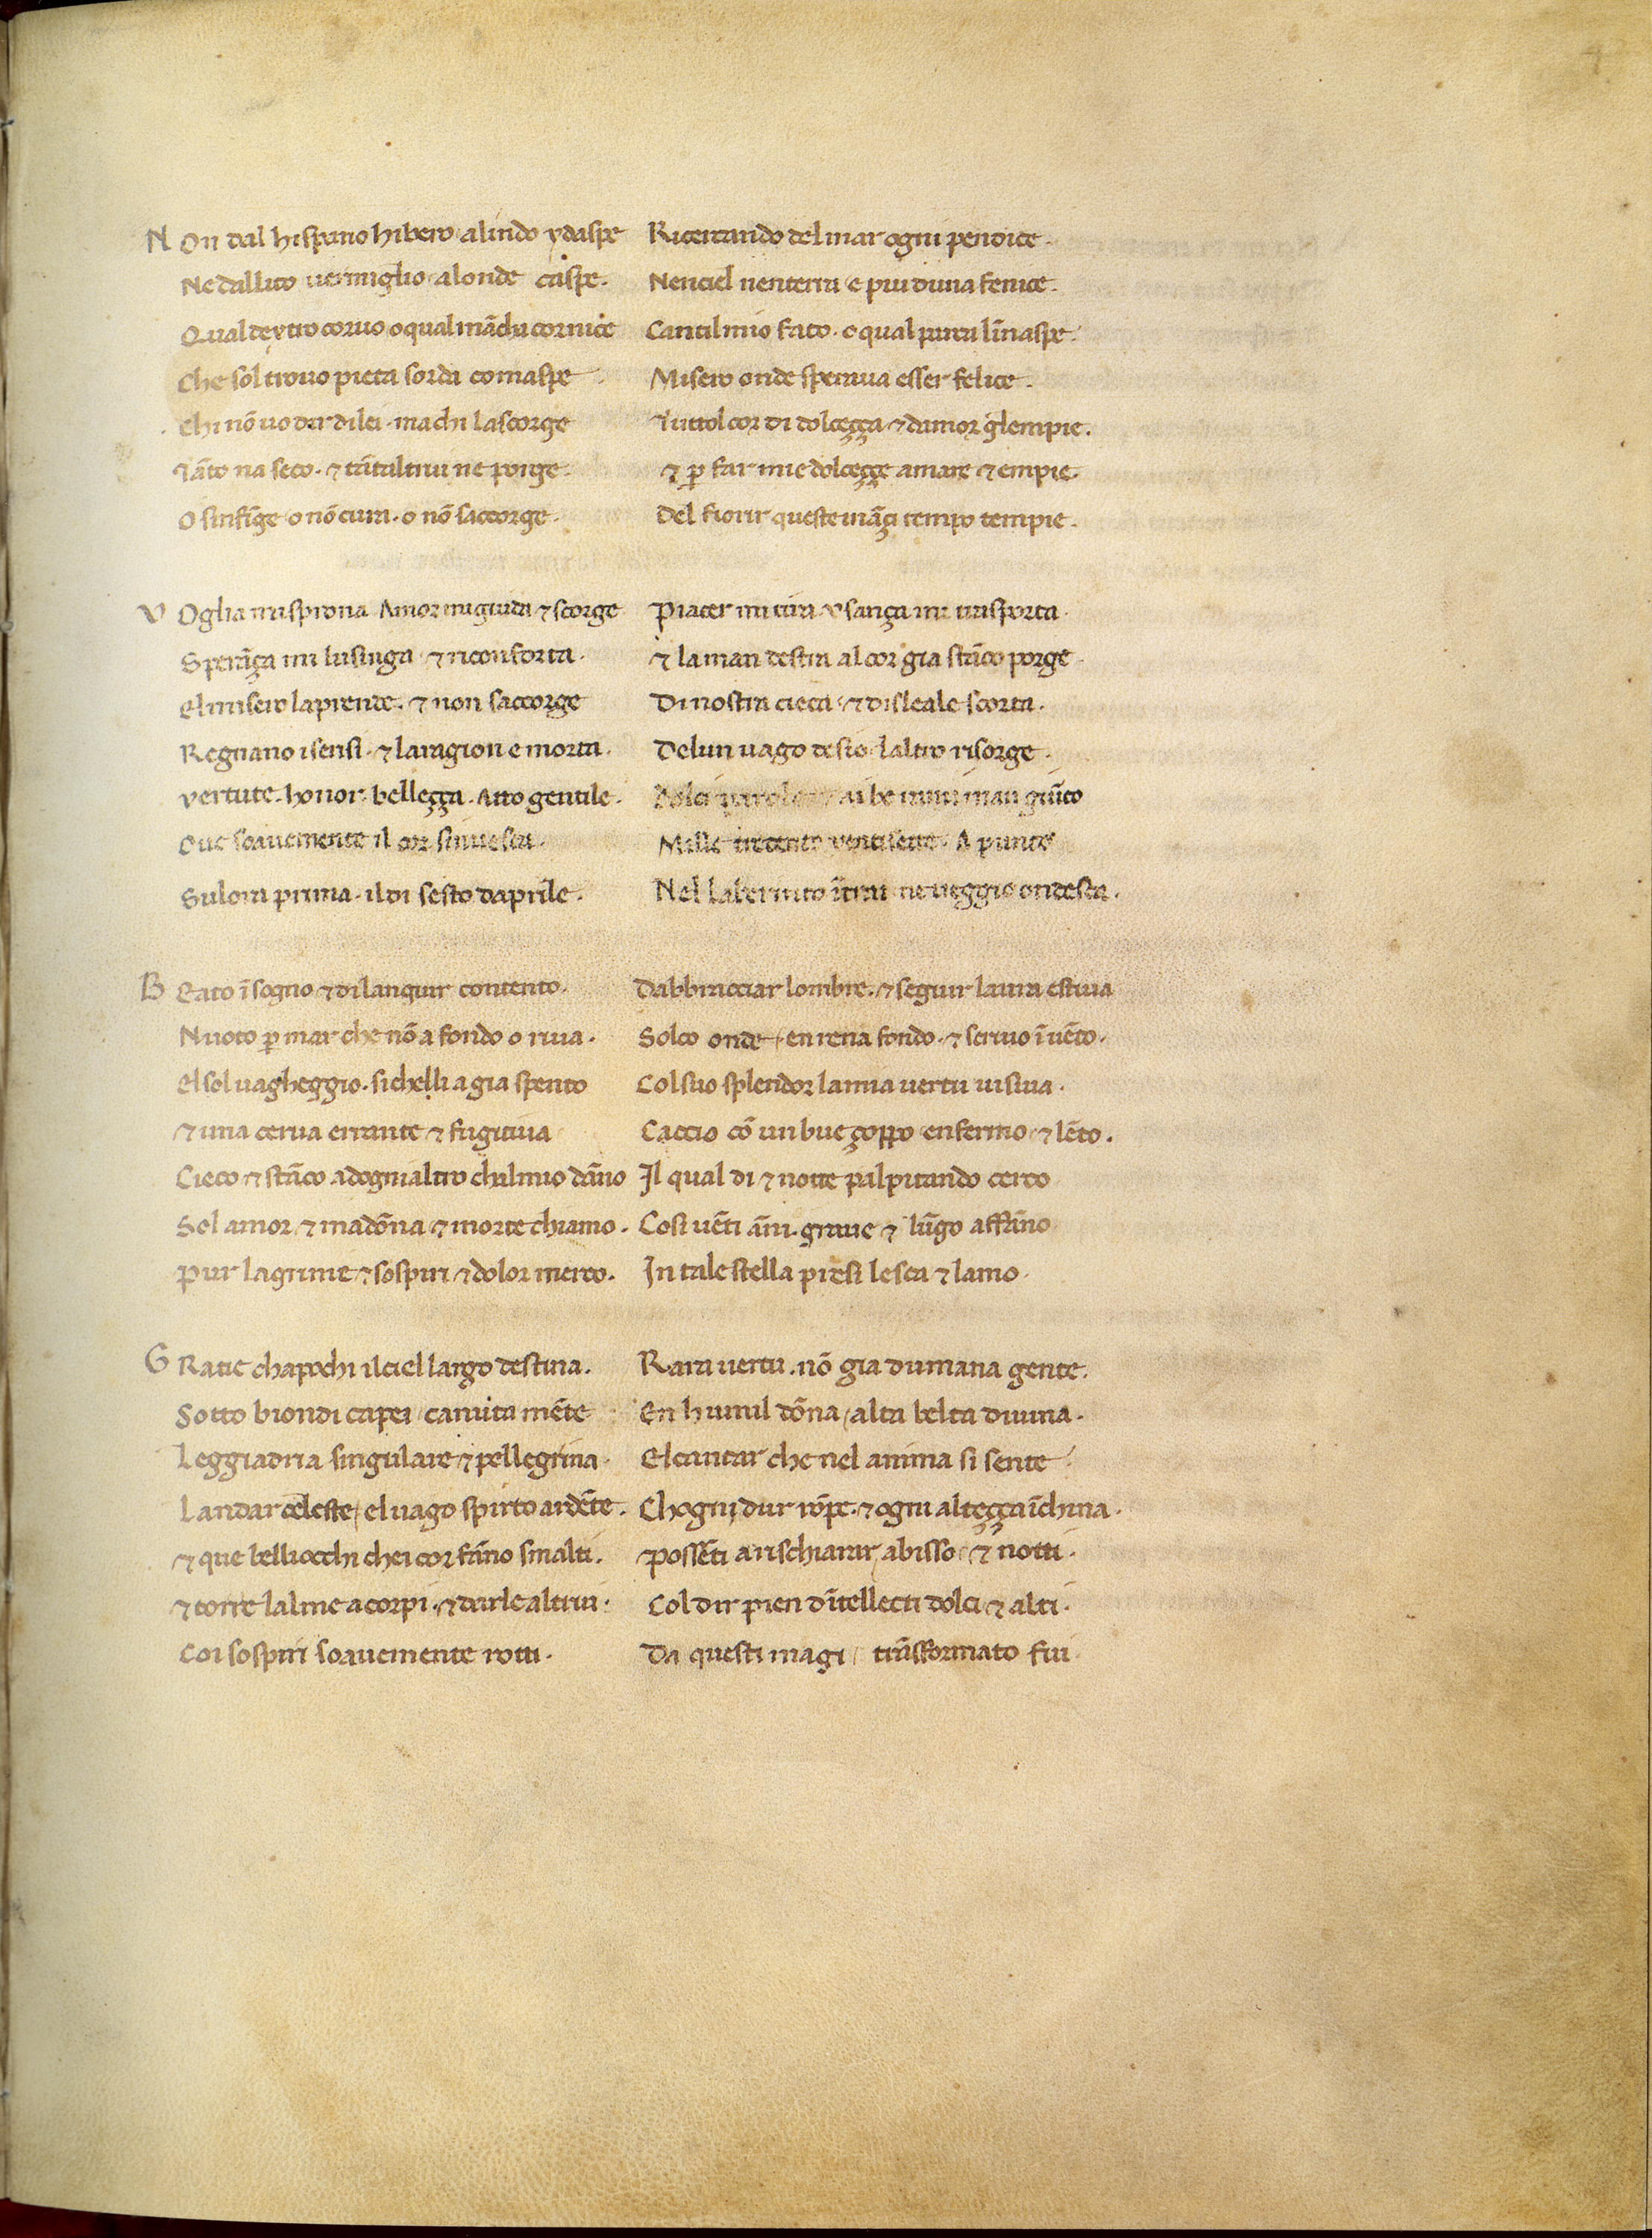 N On dal hispano hibero alindo ydaspe Ricercando del mar ogni pendice.
Ne dallito uermiglio alonde caspe. Nenciel nenterra e piu duna fenice.
Qual dextro coruo o qual mācha cornice Cantil mio fato. o qual parca līnaspe.
Che sol trouo pieta sorda comaspe. Misero onde speraua esser felice.
Chi nō uo dir di lei. ma chi la scorge Tuttol cor di dolceçça ⁊ damor glempie.
Tāto na seco. ⁊ tātaltrui ne porge. ⁊ p̲ far mie dolceççe amare ⁊ empie.
O sinfīge o nō cura. o nō saccorge. Del fiorir queste ināçi tempo tempie.
V Oglia mi sprona Amor mi guida ⁊ scorge Piacer mi tira vsança mi trasporta.
Sperāça mi lusinga ⁊ riconforta. ⁊ la man destra al cor gia stāco porge.
El misero la prende. ⁊ non saccorge Di nostra cieca ⁊ disleale scorta.
Regnano i sensi. ⁊ la ragion e morta. Delun uago desio laltro risorge.
vertute. honor. belleçça. Atto gentile. Dolci parole ai be rami man giūto
Oue soauemente il cor sinuesca. Mille trecento ventisette. A punto
Su lora prima. il di sesto daprile. Nel laberinto ītrai ne ueggio ondesca.
B Eato ī sogno ⁊ di languir contento. Dabbracciar lombre. ⁊ seguir laura estiua
Nuoto p̲ mar che nō a fondo o riua. Solco onde. en rena fondo. ⁊ scriuo ī uēto.
El sol uagheggio. si chelli a gia spento Col suo splendor la mia uertu uisiua.
⁊ una cerua errante ⁊ fugitiua Caccio cō un bue çoppo enfermo ⁊ lēto.
Cieco ⁊ stāco adognialtro chal mio dāno Il qual di ⁊ notte palpitando cerco
Sol amor ⁊ madōna ⁊ morte chiamo. Cosi uēti āni. graue ⁊ lūgo affāno
Pur lagrime ⁊ sospiri ⁊ dolor merco. In tale stella presi lesca ⁊ lamo.
G Ratie cha pochi il ciel largo destina. Rara uertu. nō gia dumana gente.
Sotto biondi capei canuta mēte En humil dōna alta belta diuina.
Leggiadria singulare ⁊ pellegrina. El cantar che nel anima si sente
Landar celeste el uago spirto ardēte. Chogni dur rōpe. ⁊ ogni alteçça īchina.
⁊ que belliocchi chei cor fāno smalti. Possēti a rischiarar abisso ⁊ notti.
⁊ torre lalme a corpi. ⁊ darle altrui. Col dir pien dītellecti dolci ⁊ alti.
Coi sospiri soauemente rotti. Da questi magi trāsformato fui.